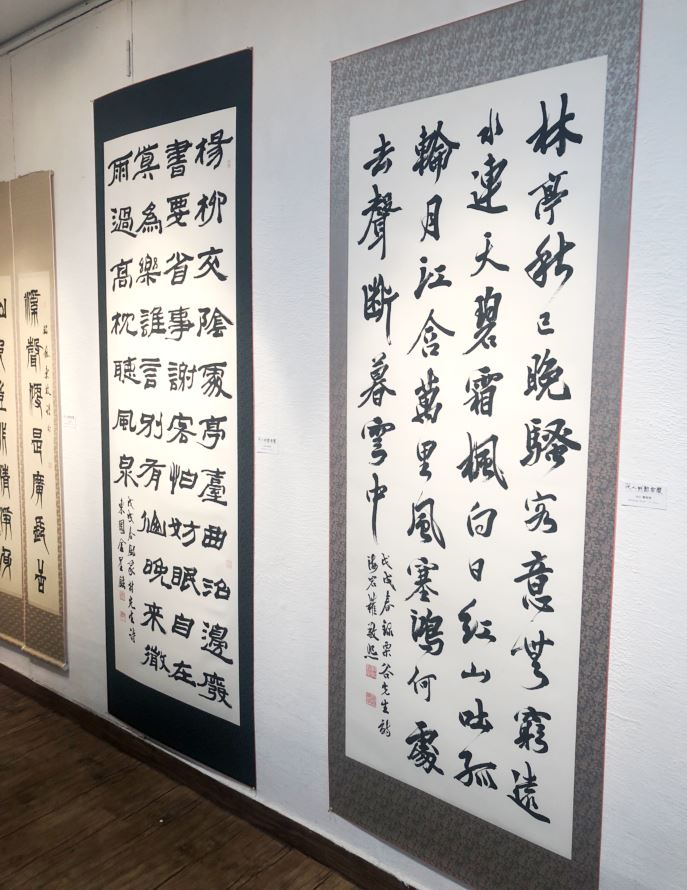 林亭秋已晩騷客意無窮遠
水連天碧霜楓向日紅山吐孤
輪月江含萬里風塞鴻何處
去聲斷暮雲中
戊戌春錄栗谷先生詩
楊柳交陰處亭臺曲沼邊廢
書要省事謝客怕妨眠自在
眞為樂誰言別有仙晩來微
雨過高枕聽風泉
戊戌春 先生詩
東園金
溪聲便是廣長舌